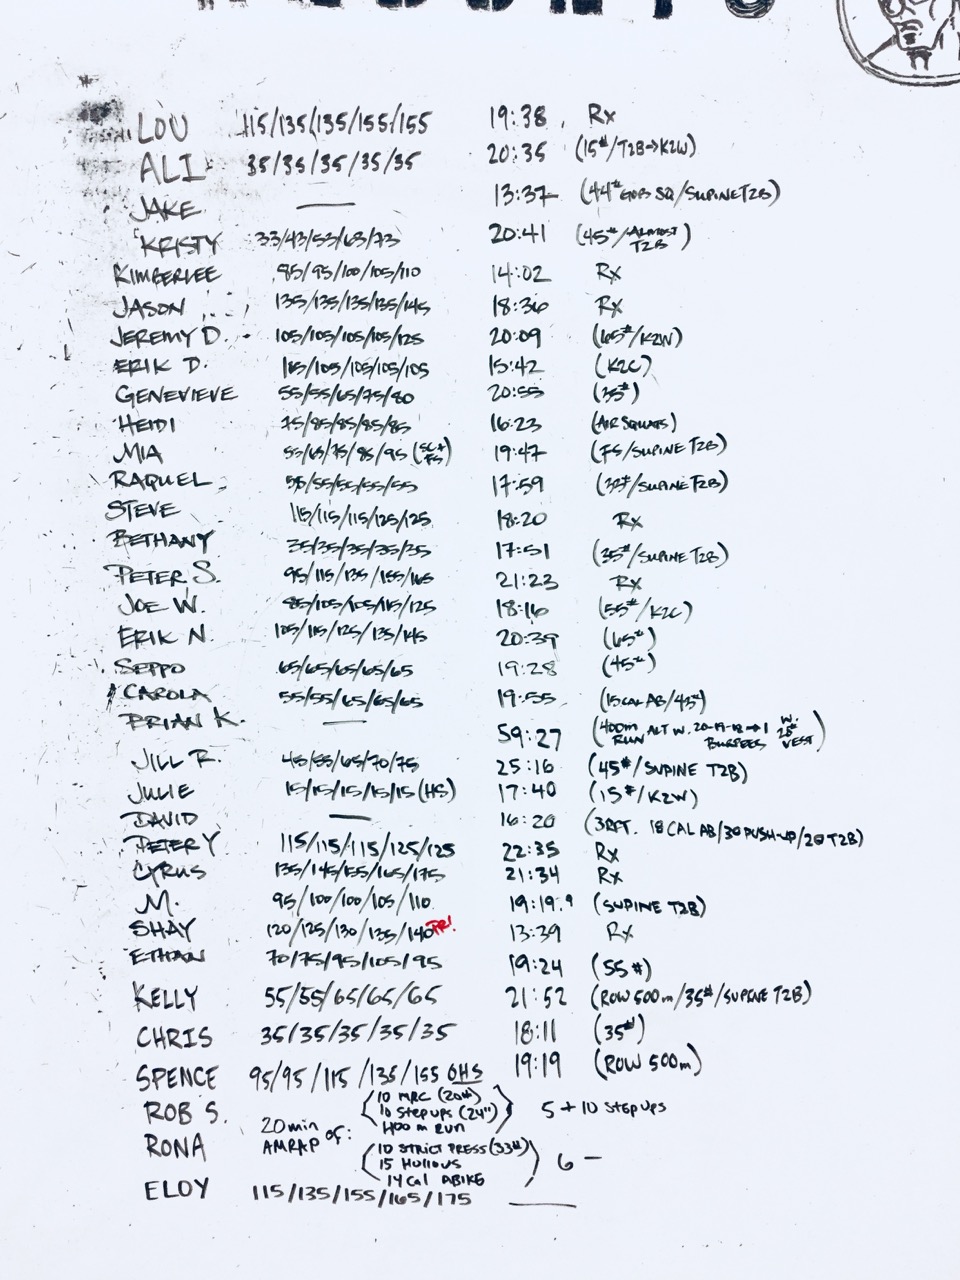 LOU 115/135/135/155/155 19:38 Rx
ALI 35/35/35/35/35 20:35 (15#/T2B→K2W)
JAKE — 13:37 (44# GOB SQ/SUPINE T2B)
KRISTY 33/43/53/63/73 20:41 (45#/ALMOST T2B)
KIMBERLEE 85/95/100/105/110 14:02 Rx
JASON 135/135/135/135/145 18:36 Rx
JEREMY D. 105/105/105/105/125 20:09 (65#/K2W)
ERIK D. 115/105/105/105/105 15:42 (K2C)
GENEVIEVE 55/55/65/75/80 20:55 (35#)
HEIDI 75/85/85/85/85 16:23 (AIR SQUATS)
MIA 55/65/75/85/95 19:47 (FS/SUPINE T2B)
RAQUEL 55/55/55/55/55 17:59 (33#/SUPINE T2B)
STEVE 115/115/115/125/125 18:20 Rx
BETHANY 35/35/35/35/35 17:51 (35#/SUPINE T2B)
PETER S. 95/115/135/155/165 21:23 Rx
JOE W. 85/105/105/115/125 18:16 (55#/K2C)
ERIK N. 105/115/125/135/145 20:39 (65#)
SEPPO 65/65/65/65/65 19:28 (45#)
CAROLA 55/55/65/65/65 19:55 (15 CAL AB/43#)
BRIAN K. — 59:27 (400m RUN ALT W. 20-19-18→1 BURPEES W. 28# VEST)
JILL R. 45/55/65/70/75 25:16 (45#/SUPINE T2B)
JULIE 15/15/15/15/15 (HS) 17:40 (15#/K2W)
DAVID — 16:20 (3RFT. 18 CAL AB/30 PUSH-UP/20 T2B)
PETER Y 115/115/115/125/125 22:35 Rx
CYRUS 135/145/155/165/175 21:34 Rx
M. 95/100/100/105/110 19:19.9 (SUPINE T2B)
SHAY 120/125/130/135/140 PR! 13:39 Rx
ETHAN 70/75/95/105/95 19:24 (55#)
KELLY 55/55/65/65/65 21:52 (ROW 500m/35#/SUPINE T2B)
CHRIS 35/35/35/35/35 18:11 (35#)
SPENCE 95/95/115/135/155 OHS 19:19 (ROW 500m)
ROB S. 10 MRC (20#)
10 Step ups (24") 5 + 10 Step ups
400 m RUN
RONA 20 min AMRAP of:
10 STRICT PRESS (33#)
15 HOLLOWS 6 —
14 Cal ABIKE
ELOY 115/135/155/165/175 —